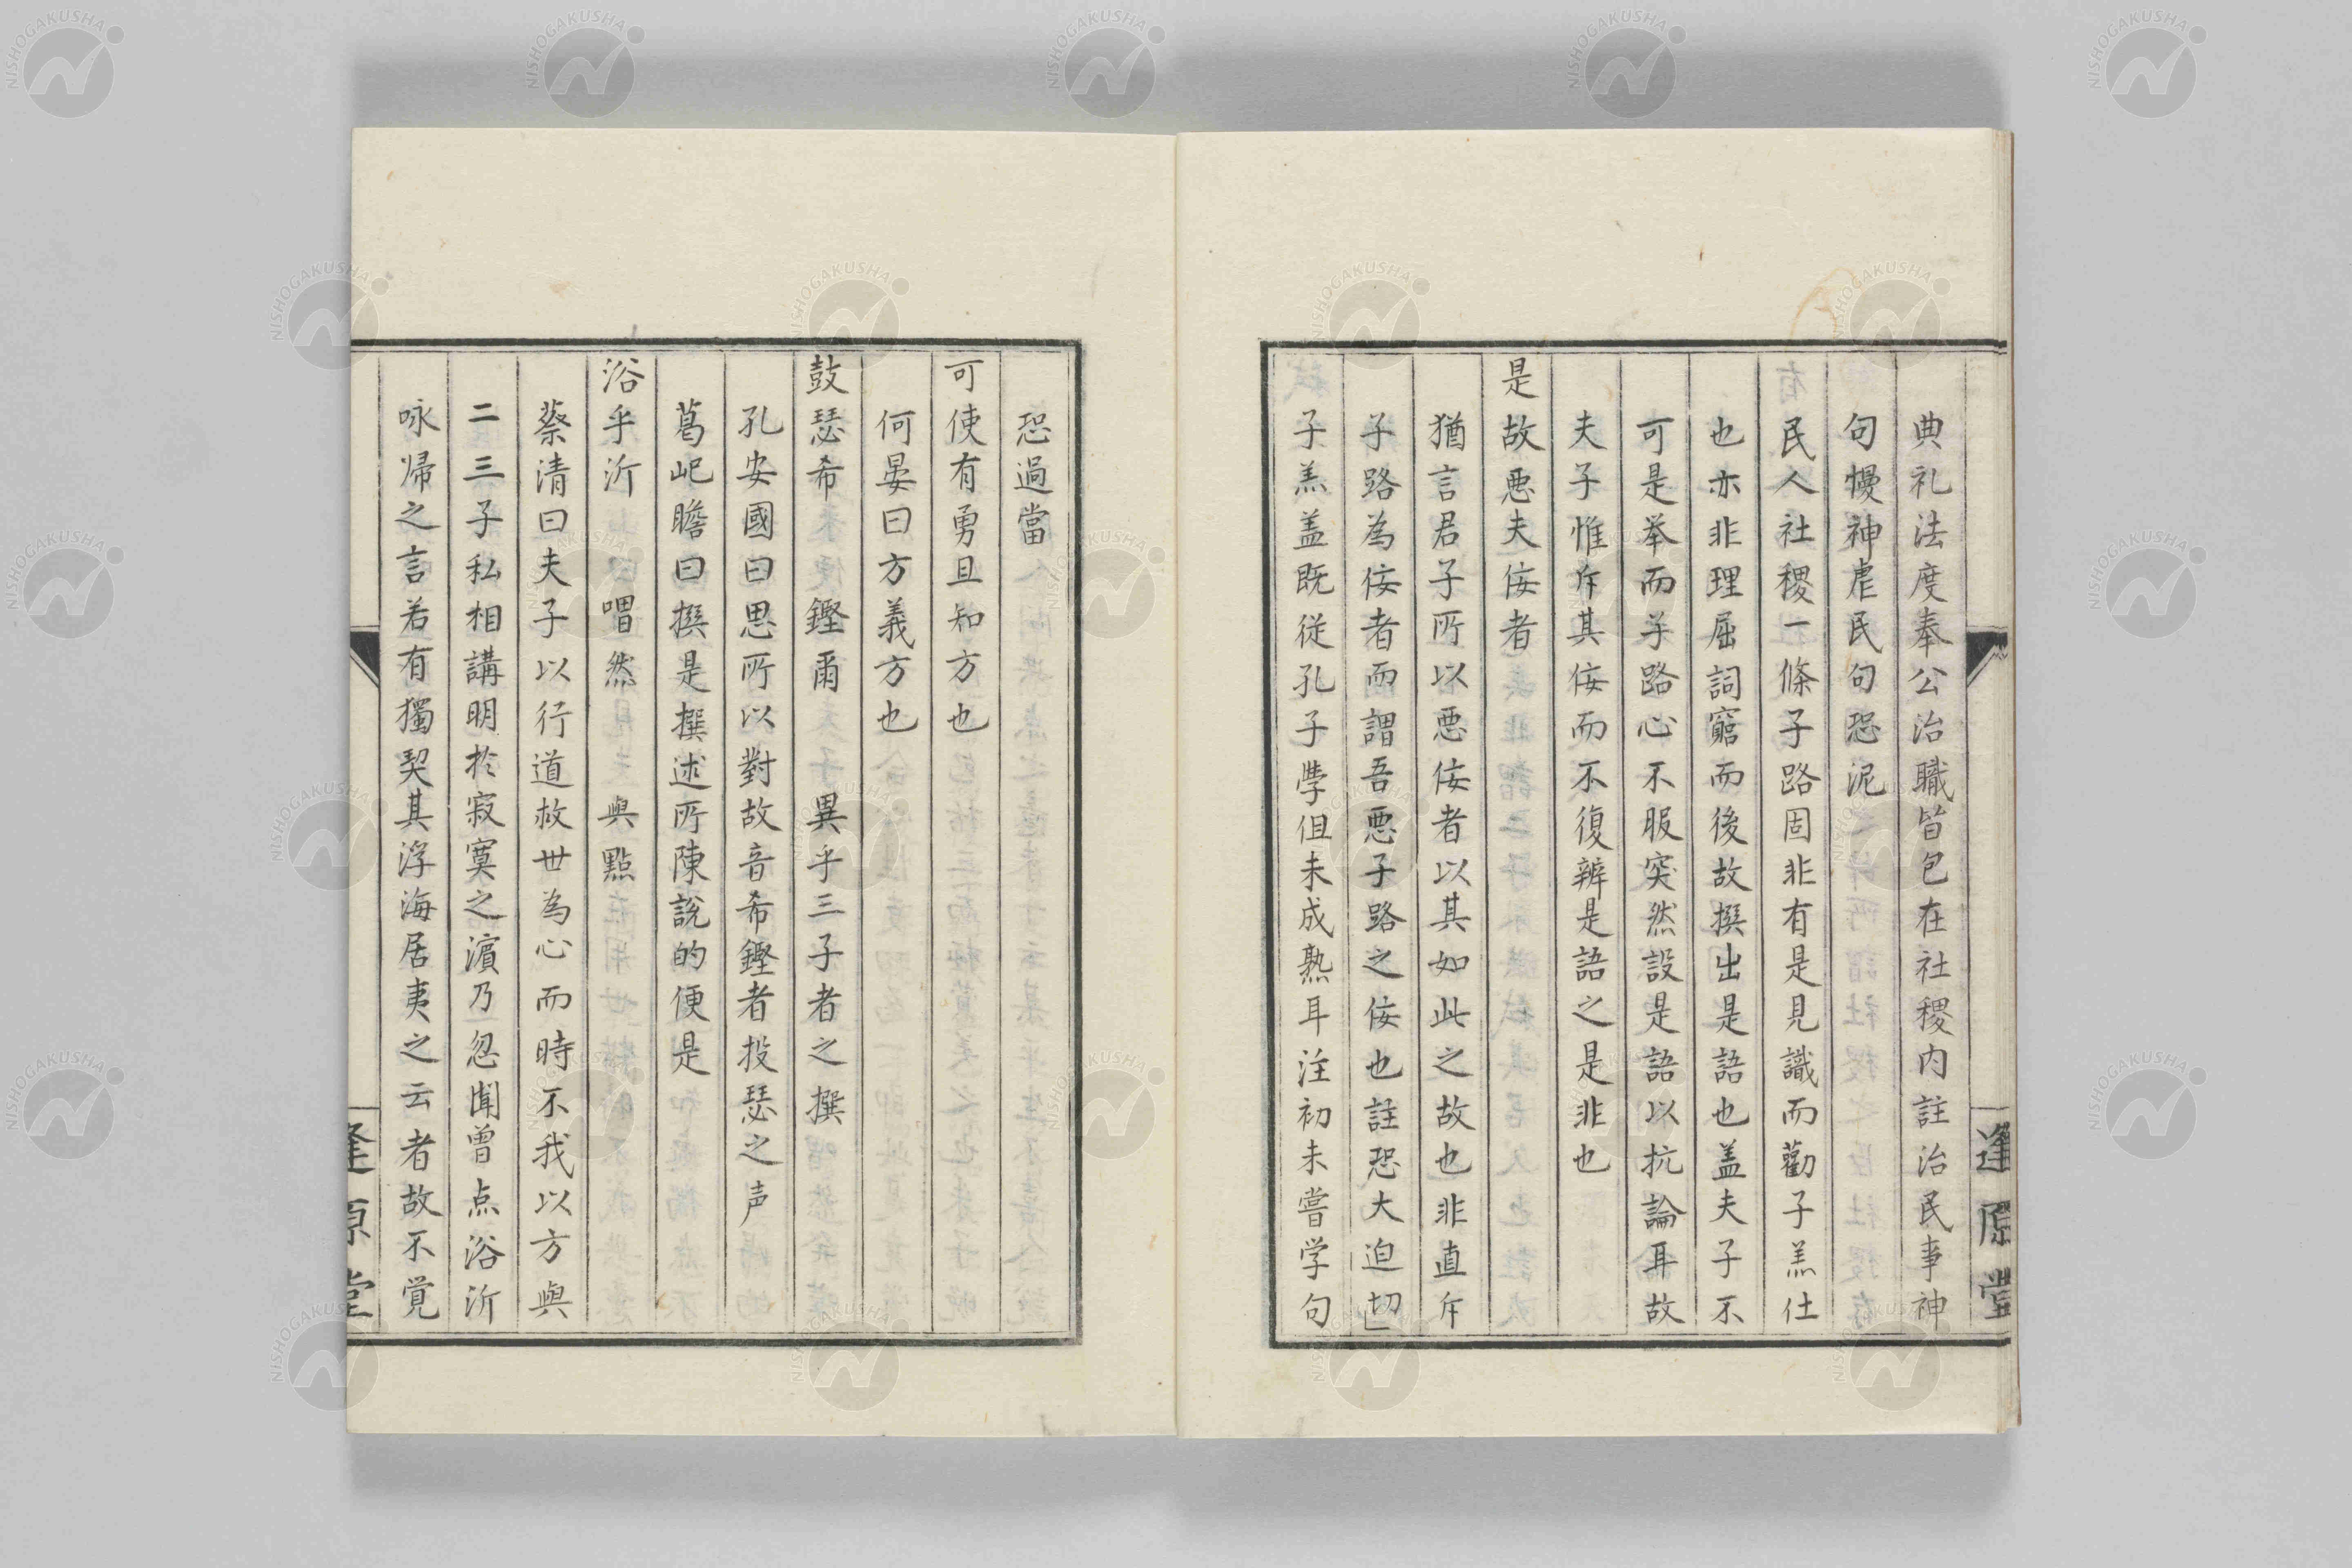 典礼法度奉公治職皆包在社稷内註治民事神
句慢神虐民句恐泥
民人社稷一條子路固非有是見識而勸子羔仕
也亦非理屈詞窮而後故撰出是語也盖夫子不
可是举而子路心不服突然設是語以抗論耳故
夫子惟斥其佞而不復辨是語之是非也
是故悪夫佞者
猶言君子所以悪佞者以其如此之故也非直斥
子路為佞者而謂吾悪子路之佞也註恐大迫切
子羔盖既従孔子学但未成熟耳注初未嘗学句
逢原堂
恐過當
可使有勇且知方也
何晏曰方義方也
鼓瑟希 鏗爾 異乎三子者之撰
孔安國曰思所以對故音希鏗者投瑟之声
葛屺瞻曰撰是撰述所陳說的便是
浴乎沂 喟然 與點
蔡清曰夫子以行道救世為心而時不我以方與
二三子私相講明於寂寞之濵乃忽聞曾点浴沂
咏帰之言若有獨契其浮海居夷之云者故不覚
逢原堂
NISHOGAKUSHA